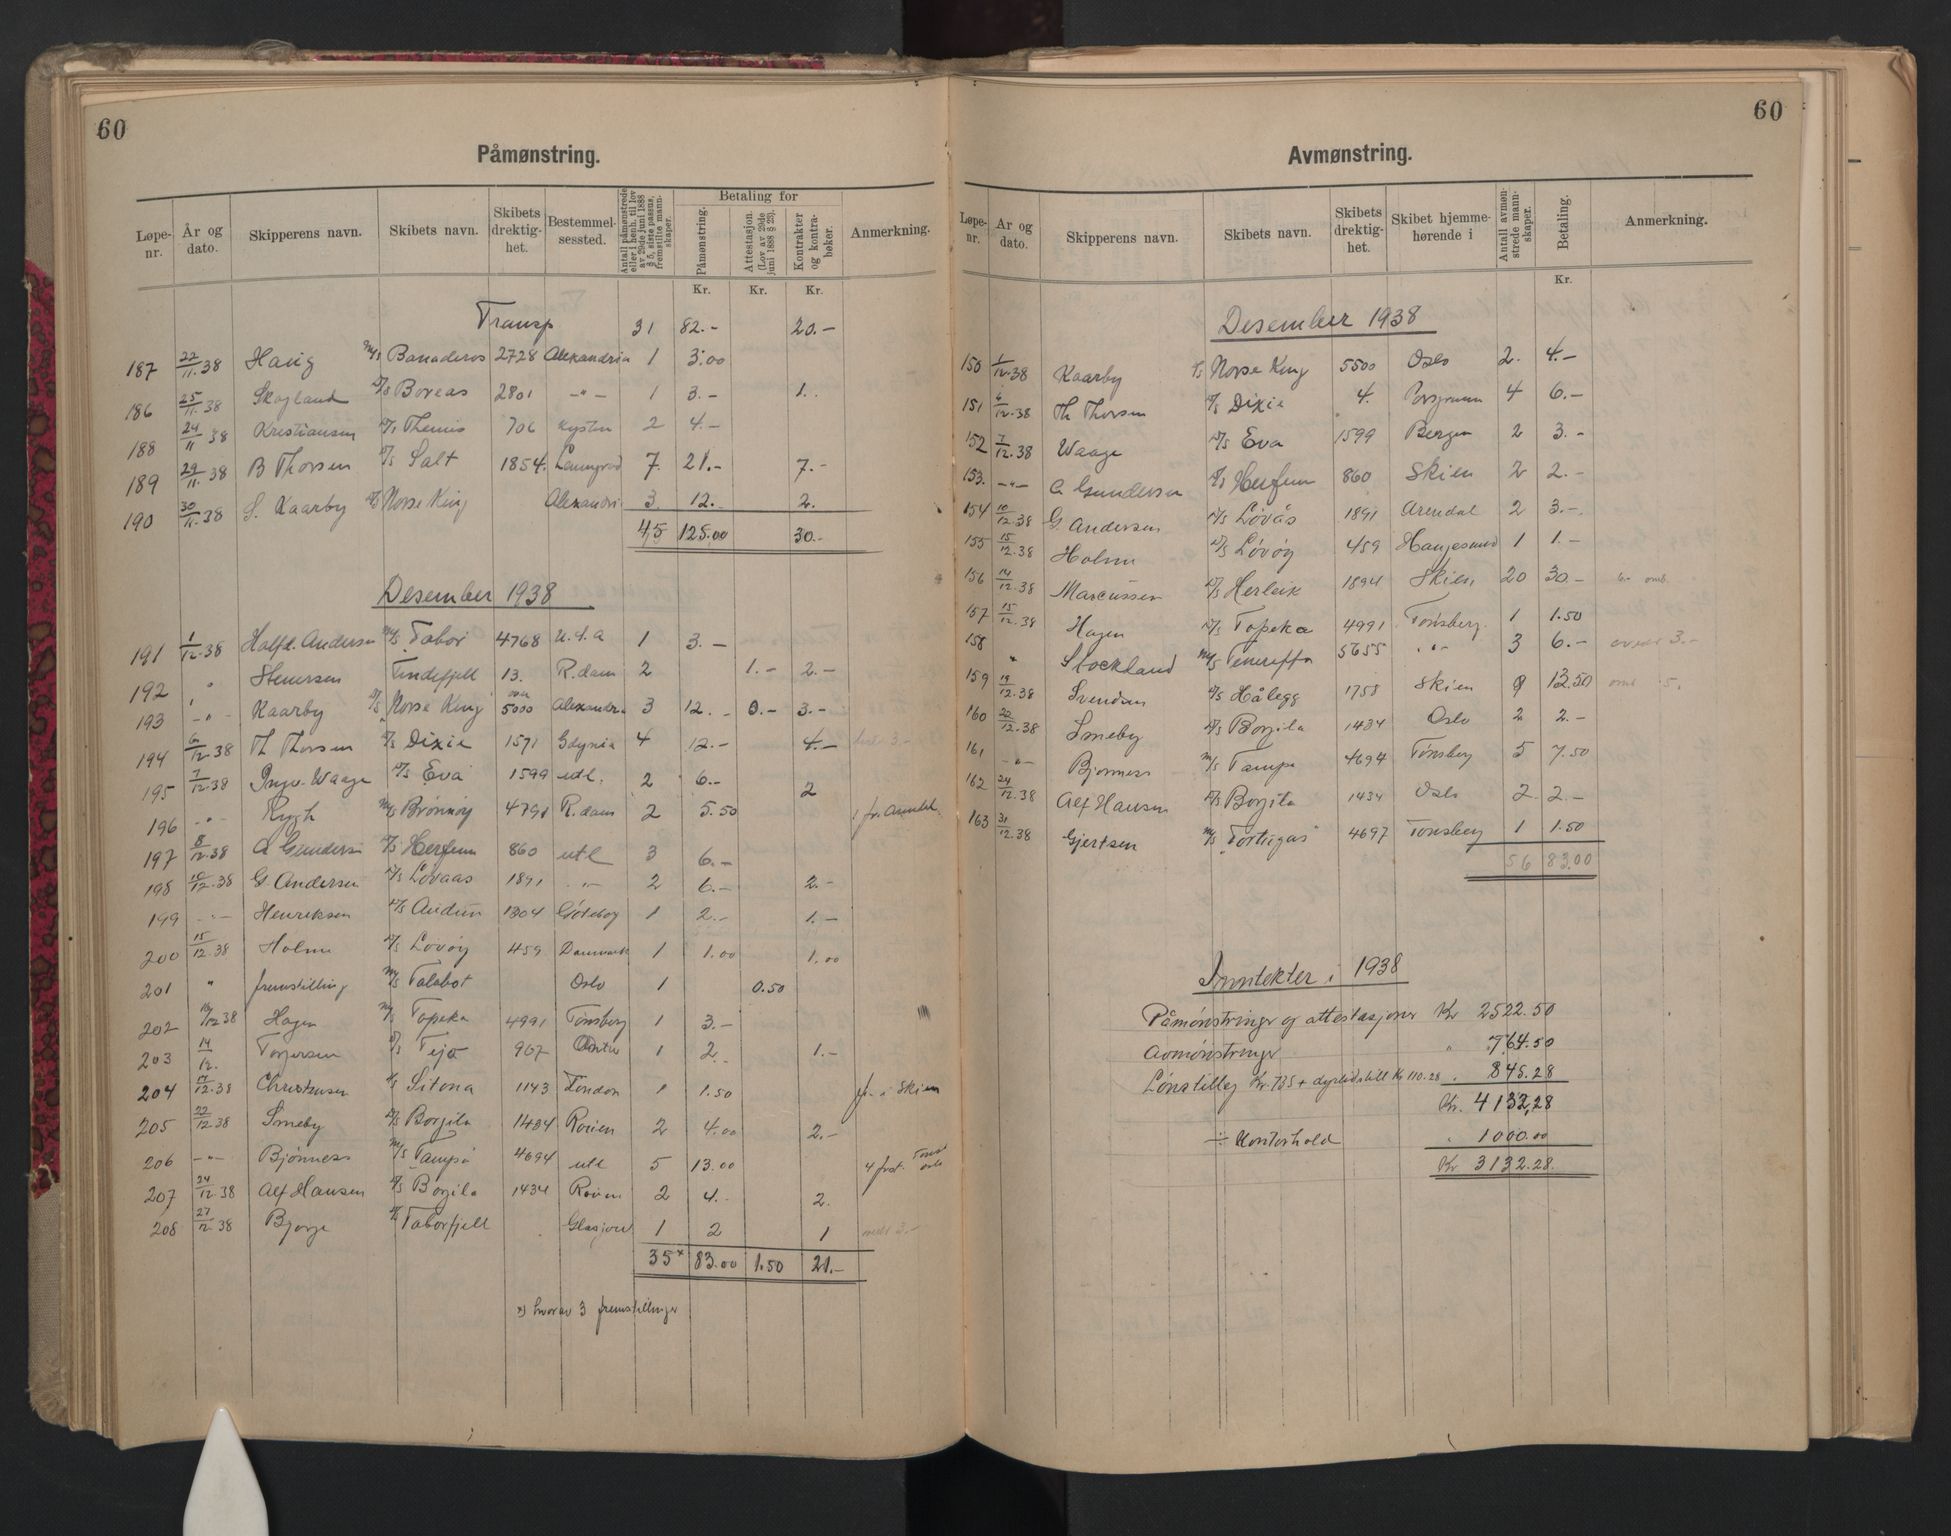 60
Påmønstring.
Løpe-nr. År og dato. Skipperens navn. Skibets navn. Skibets drektig-het. Bestemmel-sessted. Antall påmønstrede eller i henh. til lov av 29de juni 1888 § 5, siste passus, fremstilte mann-skaper. Betaling for Påmønstring. Attestasjon. (Lov av 29de juni 1888 § 23). Kontrakter og kontra-bøker. Anmerkning.
Kr. Kr. Kr.
Transp 31 82.- 20.-
187 22/11.38 Haug M/s Banaderos 2728 Alexandria 1 3.00
186 25/11.38 Skogland D/s Boreas 2801 -"- 1 3.- 1.
188 24/11 38 Kristiansen D/s Themis 706 Kysten 2 4.-
189 29/11.38 B Thorsen D/s Salt 1854. 7. 21.- 7.-
190 30/11.38 S. Kaarby D/s Norse King Alexandri. 3. 12.- 2.
45 125.00 30.-
Desember 1938
191 1/12.38 Halfd. Andersen M/s Tabor 4768 U.S.A 1 3.-
192 " Stenersen Tindefjell 13. R.dam 2 1.- 2.-
193 -"- Kaarby D/s Norse King over 5000 Alexandria 3 12.- 0.- 3.-
194 6/12.38 Th Thorsen D/s Dixie 1571 Gdynia 4 12.- 4.- 3.-
195 7/12.38 Ingv. Waage D/s Eva 1599 utl. 2 6.- 2
196 -"- Rygh M/s Brønnøy 4791 R.dam 2 5.50 1 fr.
197 8/12.38 A Gundersen D/s Herfinn 860 utl 3 6.-
198 10/12.38 G. Andersen D/s Lövaas 1891 -"- 2 6.- 2.-
199 -"- Henriksen D/s Audun 1304 Göteborg 1 2.- 1.-
200 15/12.38 Holm D/s Lövöy 459 Danmark 1 1.00 1.00
201 " fremstilling M/s Talabot Oslo 1 0.50
202 10/12 38 Hagen M/s Topeka 4991 Tønsberg 1 3.-
203 14/12. Torjersen D/s Tejo 967 1 2.- 1.-
204 17/12.38 Christensen D/s Sitona 1143 London 1 1.50 fr. i Skien
205 22/12 38 Smeby D/s Borgila 1434 Rouen 2 4.00 2.-
206 -"- Bjønness M/s Tampa 4694 utl 5 13.00 4 frst. Tønsb Oslo
207 24/12.38 Alf Hansen D/s Borgila 1434 Rouen 2 4.- 2.
208 27/12.38 Bjorge Taborfjell Glasgow 1 2 1 3.-
35* 83.00 1.50 21.-
*) hvorav 3 fremstillinger
60
Avmønstring.
Løpe-nr. År og dato. Skipperens navn. Skibets navn. Skibets drektig-het. Skibet hjemme-hørende i Antall avmøn-strede mann-skaper. Betaling. Anmerkning.
Kr.
Desember 1938
150 1/12.38 Kaarby D/s Norse King 5500 Oslo 2. 4.-
151 6/12.38 Th Thorsen D/s Dixie 4. Porsgrunn 4 6.-
152 7/12.38 Waage D/s Eva 1599 Bergen 2 3.-
153. -"- A Gundersen D/s Herfinn 860 Skien 2 2.-
154 10/12.38 G. Andersen D/s Lövås 1891 Arendal 2 3.-
155 15/12.38 Holm D/s Lövöy 459 Haugesund 1 1.-
156 14/12.38 Marcussen D/s Herleik 1894 Skien 20 30.- 6.- omb.
157 15/12.38 Hagen M/s Topeka 4991 Tønsberg. 1 1.50
158 " Stockland M/s Teneriffa 5655 -"- 3 6.- 3.-
159 19/12.38 Svendsen D/s Hålegg 1758 Skien 9 13.50 omb 5.
160 22/12.38 Smeby D/s Borgila 1434 Oslo 2 2.-
161 -"- Bjønness M/s Tampa 4694 Tønsberg 5 7.50
162 24/12.38 Alf Hansen D/s Borgila 1434 Oslo 2 2.-
163 31/12.38 Gjertsen M/s Tortugas 4697 Tønsberg 1 1.50
56 83.00
Inntekter i 1938
Påmönstringer og attestasjoner Kr 2522.50
Avmönstringer " 764.50
Lønstillegg Kr. 735 + dyrtidstill Kr 110.28 " 845.28
Kr. 4132,28
÷ Kontorhold " 1000.00
Kr 3132.28.